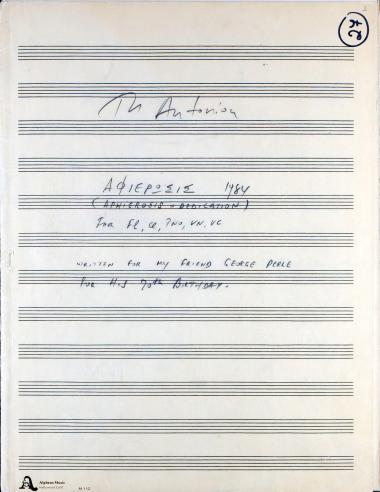 24
Th Antoniou
ΑΦΙΕΡΩΣΙΣ 1984
(APHIEROSIS = DEDICATION)
For Fl, CL, PNO, VN, VC
WRITTEN FOR MY FRIEND GEORGE PERLE
FOR HIS 70th BIRTHDAY.
Alpheus Music
Hollywood Calif.
M-112